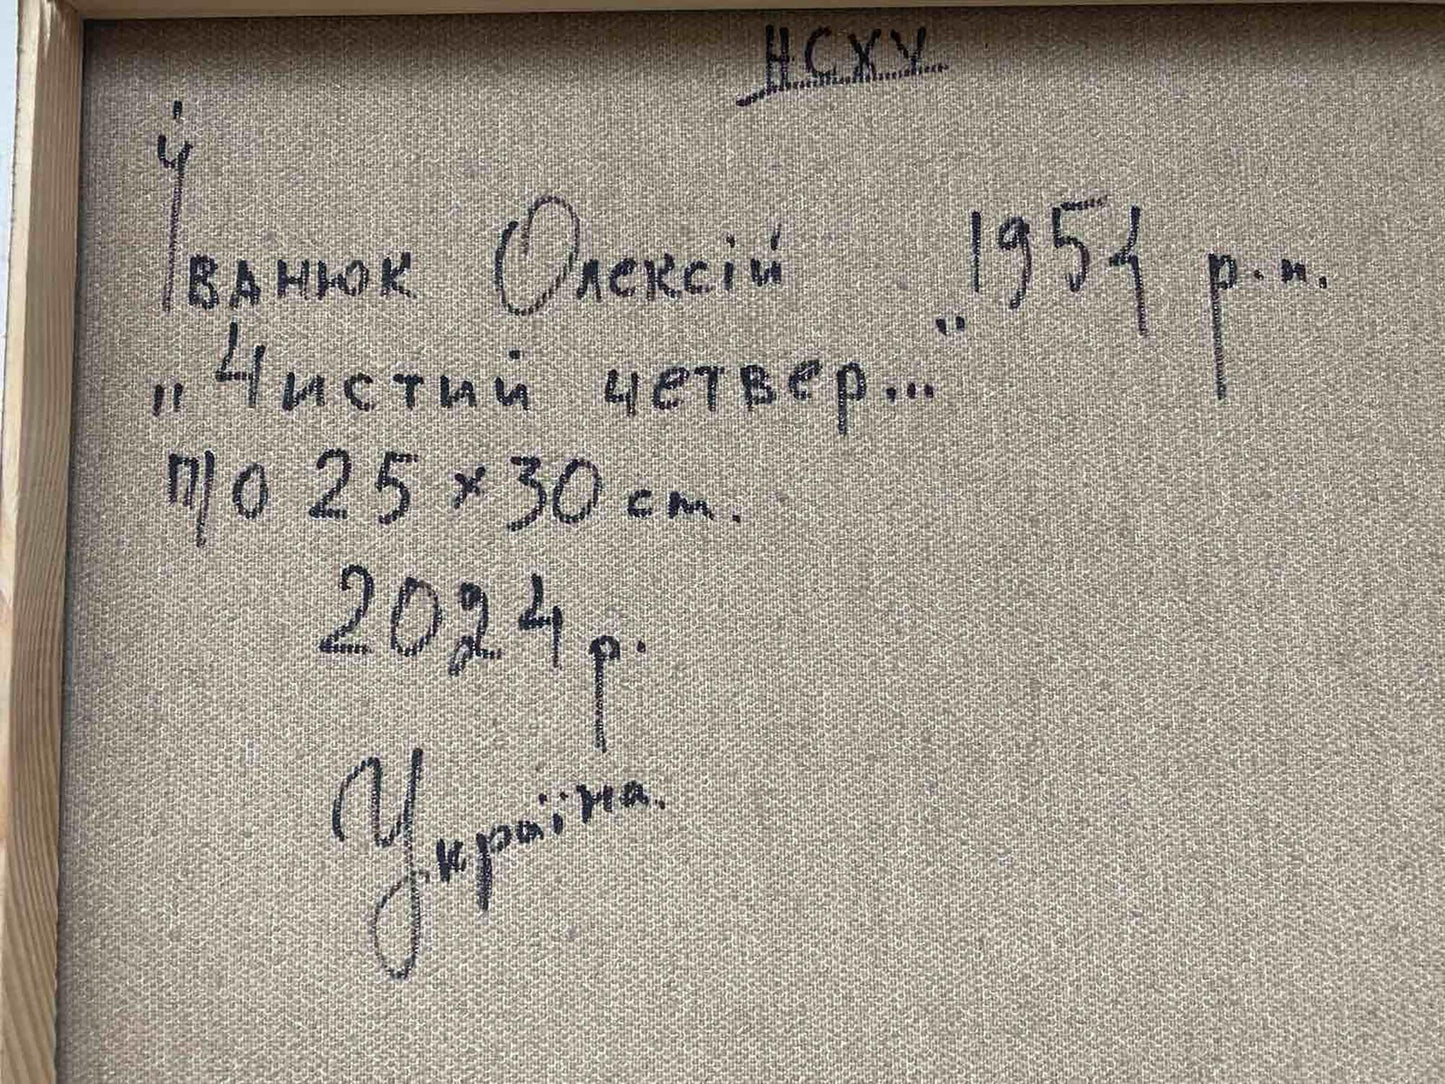 НСХУ
Іванюк Олексій 1954 р.н.
"Чистий четвер..."
п/о 25 × 30 см.
2024 р.
Україна.